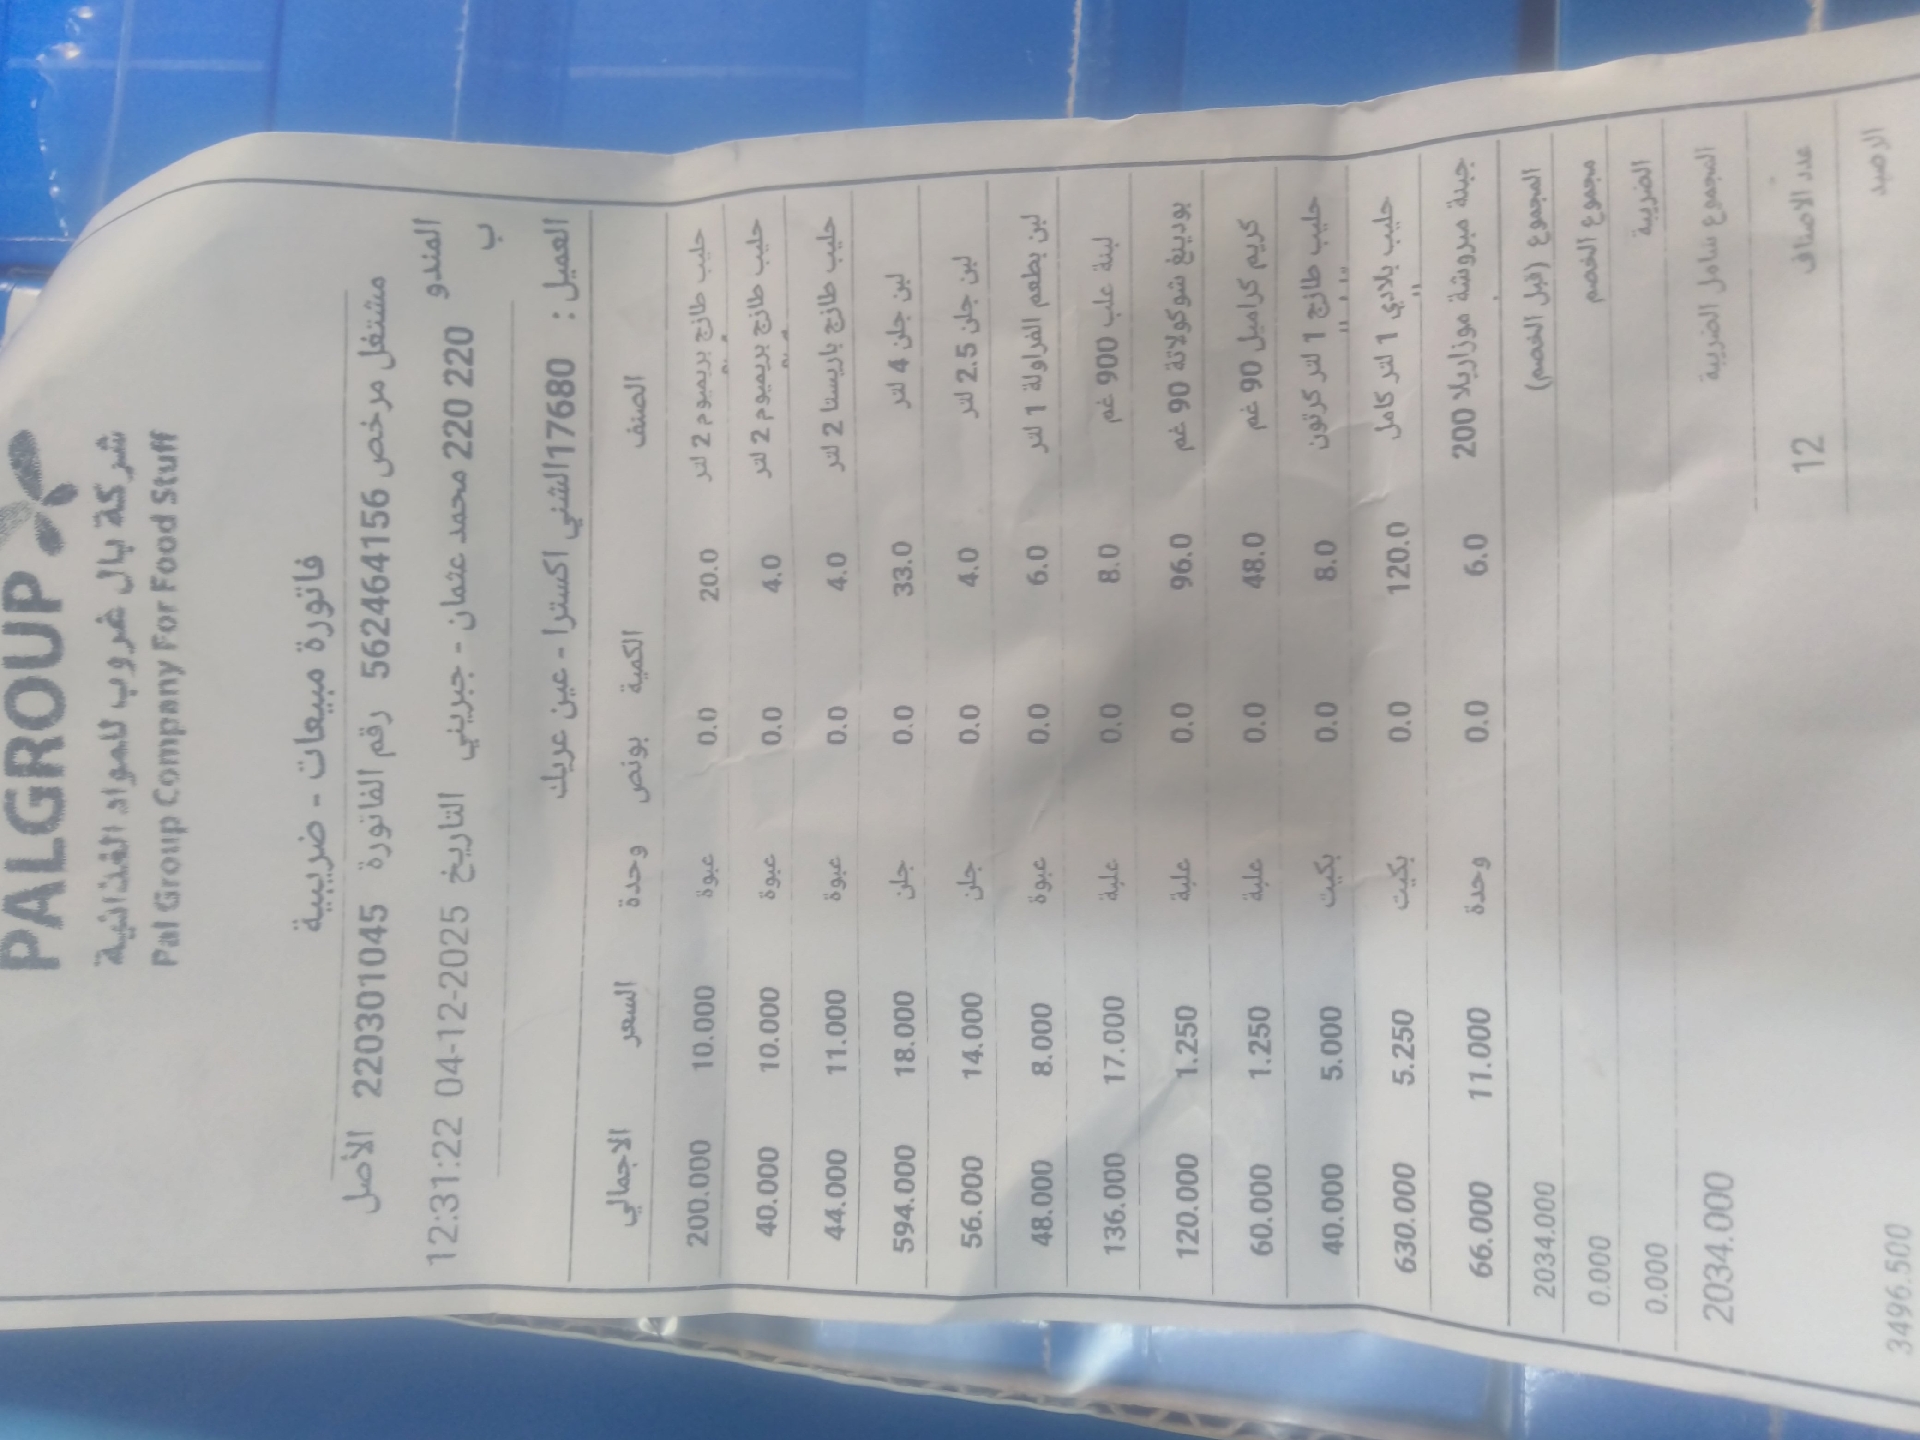 PALGROUP
شركة بال غروب للمواد الغذائية
Pal Group Company For Food Stuff
فاتورة مبيعات - ضريبية
مشتغل مرخص 562464156 رقم الفاتورة 220301045 الأصل
المندوب 220 220 محمد عثمان - جبريني التاريخ 04-12-2025 12:31:22
العميل : 17680الشني اكسترا - عين عريك
الصنف الكمية بونص وحدة السعر الاجمالي
حليب طازج بريميوم 2 لتر 20.0 0.0 عبوة 10.000 200.000
حليب طازج بريميوم 2 لتر 4.0 0.0 عبوة 10.000 40.000
حليب طازج باريستا 2 لتر 4.0 0.0 عبوة 11.000 44.000
لبن جلن 4 لتر 33.0 0.0 جلن 18.000 594.000
لبن جلن 2.5 لتر 4.0 0.0 جلن 14.000 56.000
لبن بطعم الفراولة 1 لتر 6.0 0.0 عبوة 8.000 48.000
لبنة علب 900 غم 8.0 0.0 علبة 17.000 136.000
بودينغ شوكولاتة 90 غم 96.0 0.0 علبة 1.250 120.000
كريم كراميل 90 غم 48.0 0.0 علبة 1.250 60.000
حليب طازج 1 لتر كرتون 8.0 0.0 بكيت 5.000 40.000
حليب بلادي 1 لتر كامل 120.0 0.0 بكيت 5.250 630.000
جبنة مبروشة موزاريلا 200 6.0 0.0 وحدة 11.000 66.000
المجموع (قبل الخصم) 2034.000
مجموع الخصم 0.000
الضريبة 0.000
المجموع شامل الضريبة 2034.000
عدد الاصناف 12
الرصيد 3496.500